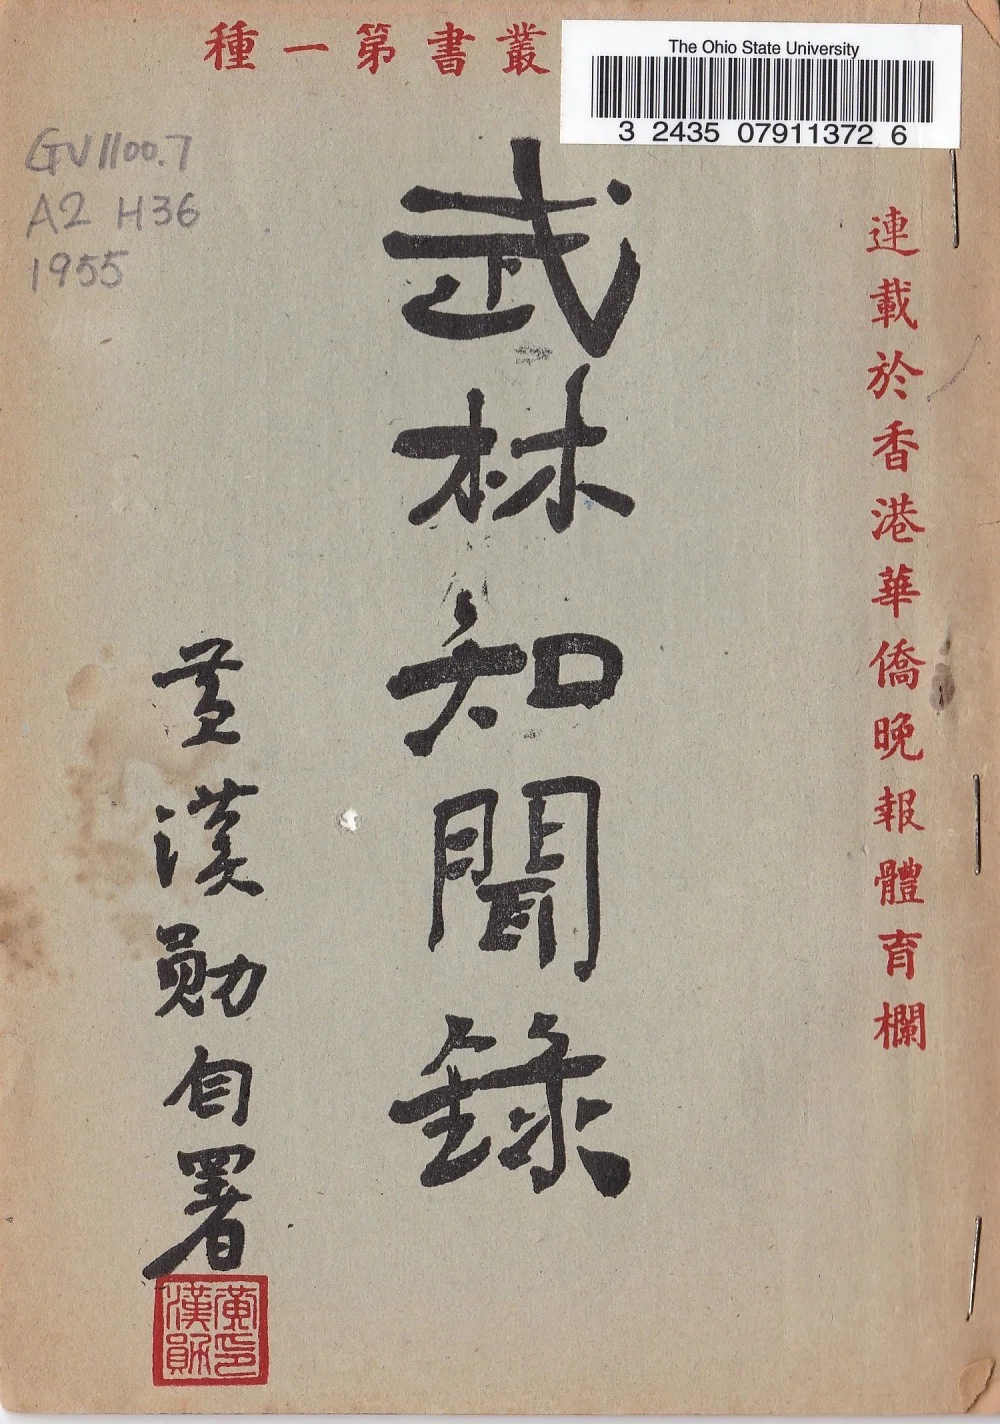 叢書第一種
The Ohio State University
3 2435 07911372 6
GV1100.7
A2 H36
1955
連載於香港華僑晚報體育欄
武林知聞錄
黃漢勛自署
黃漢勛印